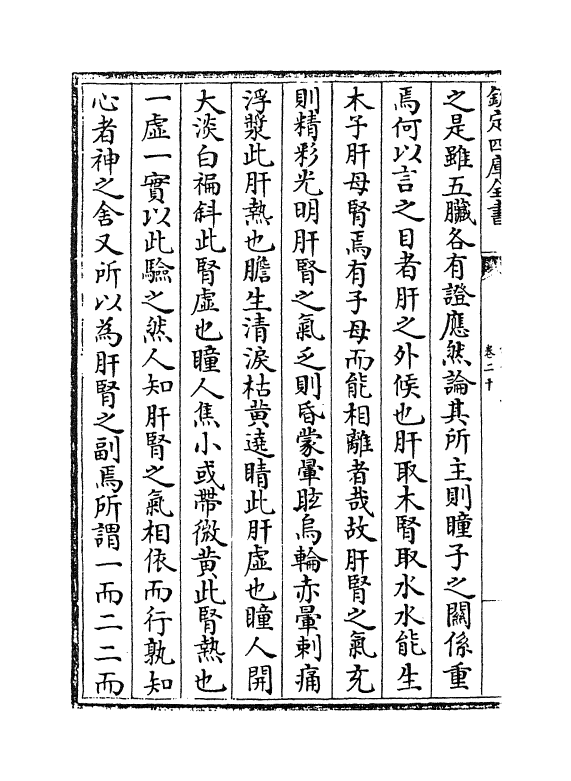 欽定四庫全書
卷二十
之是雖五臟各有證應然論其所主則瞳子之關係重
焉何以言之目者肝之外候也肝取木腎取水水能生
木子肝母腎焉有子母而能相離者哉故肝腎之氣充
則精彩光明肝腎之氣乏則昏蒙暈眩烏輪赤暈刺痛
浮漿此肝熱也膽生清淚枯黄遶睛此肝虛也瞳人開
大淡白褊斜此腎虛也瞳人焦小或帶微黄此腎熱也
一虛一實以此驗之然人知肝腎之氣相依而行孰知
心者神之舍又所以為肝腎之副焉所謂一而二二而